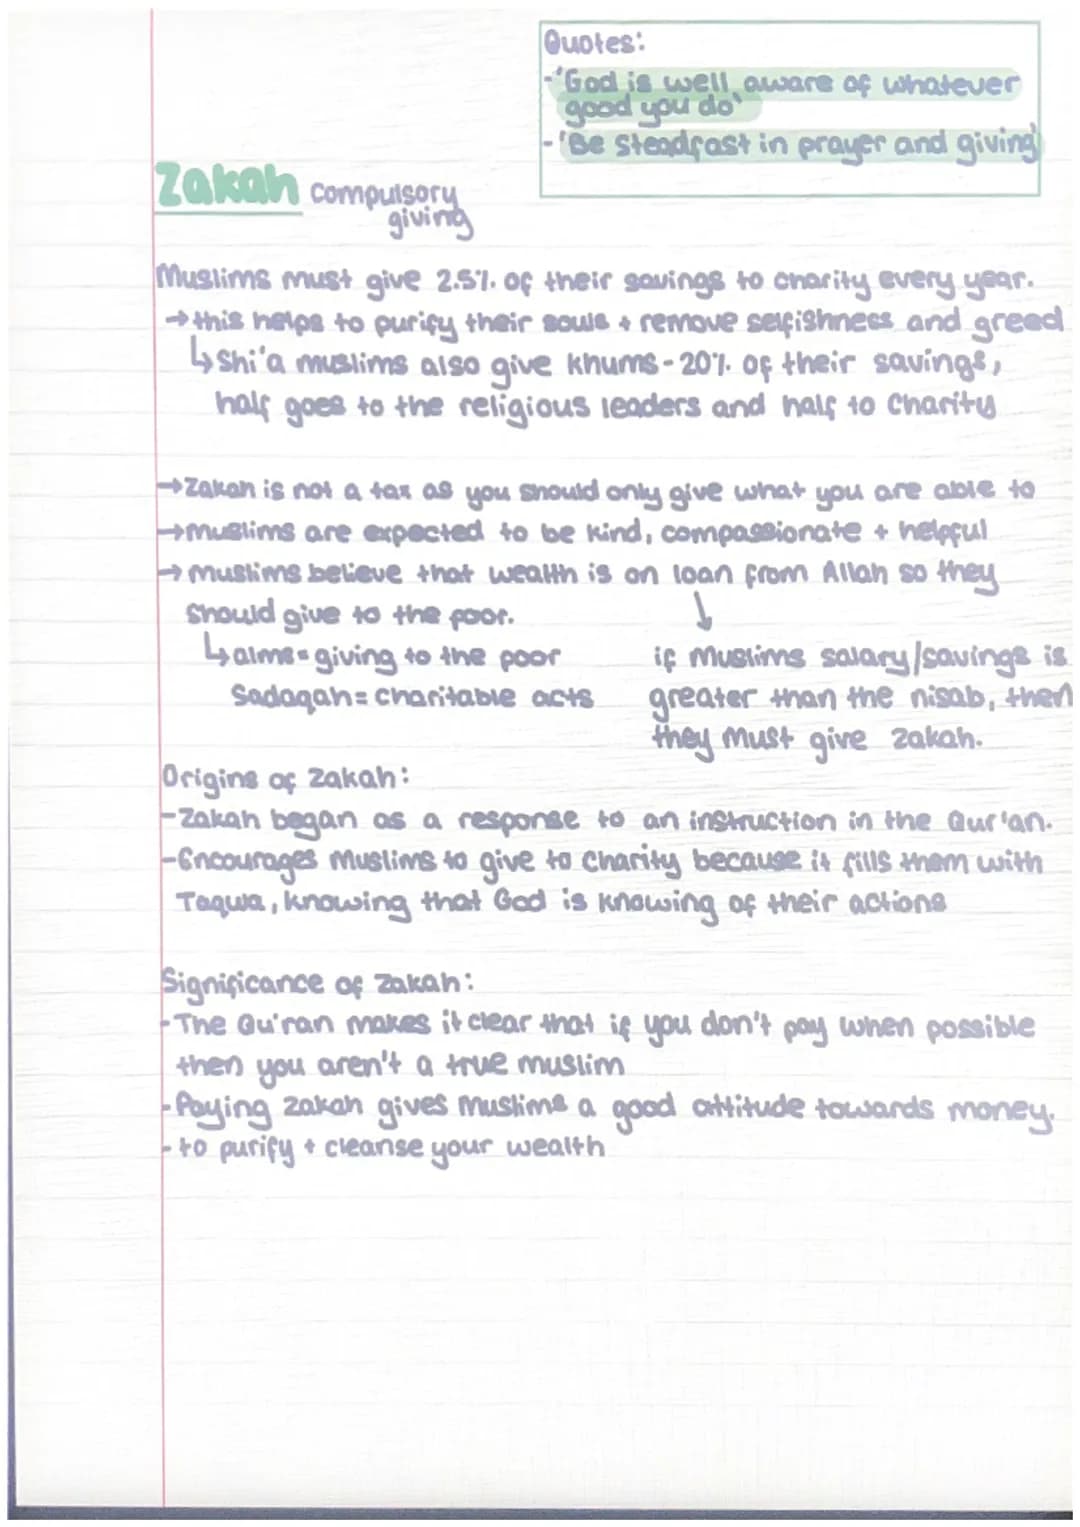 Quotes:
-'God is well aware of whatever
good you do'
-'Be Steadfast in prayer and giving'
Zakah compulsory
giving
Muslims must give 2.5% of their savings to charity every year.
→ this helps to purify their souls + remove selfishness and greed
↳ Shi'a muslims also give khums - 20% of their savings,
half goes to the religious leaders and half to Charity
→ Zakah is not a tax as you should only give what you are able to
→ muslims are expected to be kind, compassionate + helpful
→ muslims believe that wealth is on loan from Allah so they
should give to the poor. ↓
↳ alms = giving to the poor if Muslims salary/savings is
Sadaqah = charitable acts greater than the nisab, then
they must give zakah.
Origins of Zakah:
-Zakah began as a response to an instruction in the Qur'an.
-Encourages Muslims to give to charity because it fills them with
Taqwa, knowing that God is knowing of their actions
Significance of Zakah:
-The Qu'ran makes it clear that if you don't pay when possible
then you aren't a true muslim
-Paying zakah gives Muslims a good attitude towards money.
- to purify + cleanse your wealth